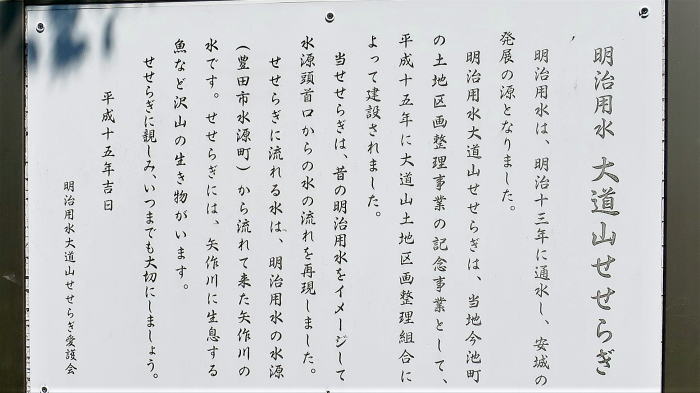 明治用水 大道山せせらぎ
明治用水は、明治十三年に通水し、安城の
発展の源となりました。
明治用水大道山せせらぎは、当地今池町
の土地区画整理事業の記念事業として、
平成十五年に大道山土地区画整理組合に
よって建設されました。
当せせらぎは、昔の明治用水をイメージして
水源頭首口からの水の流れを再現しました。
せせらぎに流れる水は、明治用水の水源
(豊田市水源町)から流れて来た矢作川の
水です。せせらぎには、矢作川に生息する
魚など沢山の生き物がいます。
せせらぎに親しみ、いつまでも大切にしましょう。
平成十五年吉日
明治用水大道山せせらぎ愛護会